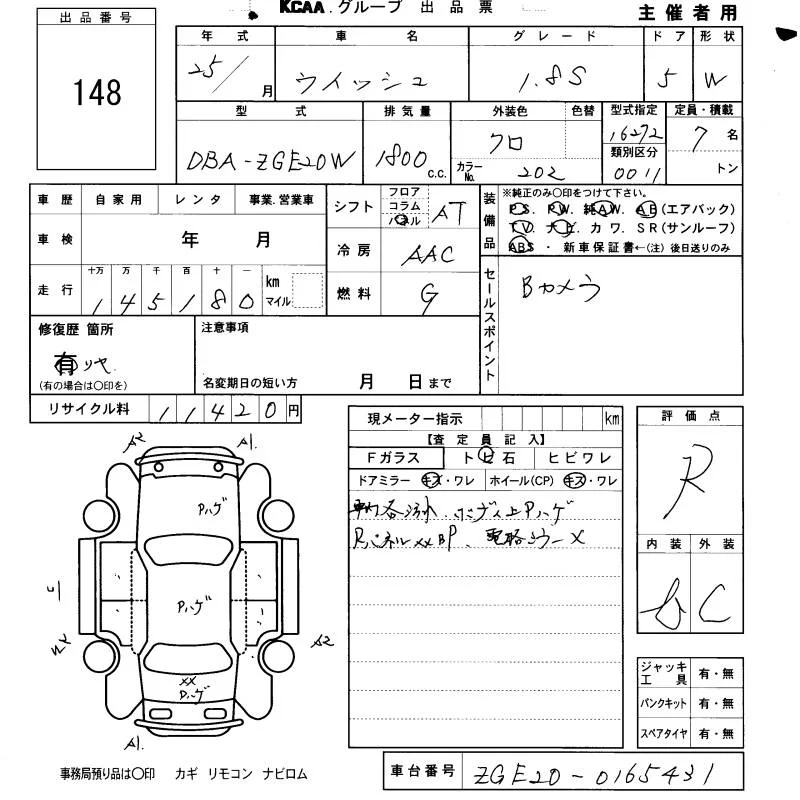 KCAA.グループ 出品票
主催者用
出品番号
148
年式 車名 グレード ドア 形状
25/ 月 ウイッシュ 1.8S 5 W
型式 排気量 外装色 色替 型式指定 定員・積載
DBA-ZGE20W 1800 c.c. クロ 16272 7 名
カラーNo. 202 類別区分 0011 トン
車歴 自家用 レンタ 事業.営業車
車検 年 月
走行 十万 万 千 百 十 一
1 4 5 1 8 0 km マイル
シフト フロア コラム パネル AT
冷房 AAC
燃料 G
装備品
※純正のみ〇印をつけて下さい。
PS. PW. 純AW. AB(エアバック)
TV. ナビ. カワ. SR(サンルーフ)
ABS・ 新車保証書←(注)後日送りのみ
セールスポイント
Bカメラ
修復歴 箇所
有
(有の場合は〇印を)
注意事項
名変期日の短い方 月 日まで
リサイクル料 1 1 4 2 0 円
現メーター指示 km
【査定員記入】
Fガラス トビ石 ヒビワレ
ドアミラー キズ・ワレ ホイール(CP) キズ・ワレ
ボディ上Pハゲ
Rパネルxx BP.
評価点
R
内装 外装
C
A2 A1.
Pハゲ
Pハゲ
A2
xx
Pハゲ
A1.
ジャッキ工具 有・無
パンクキット 有・無
スペアタイヤ 有・無
事務局預り品は〇印 カギ リモコン ナビロム
車台番号 ZGE20-0165431